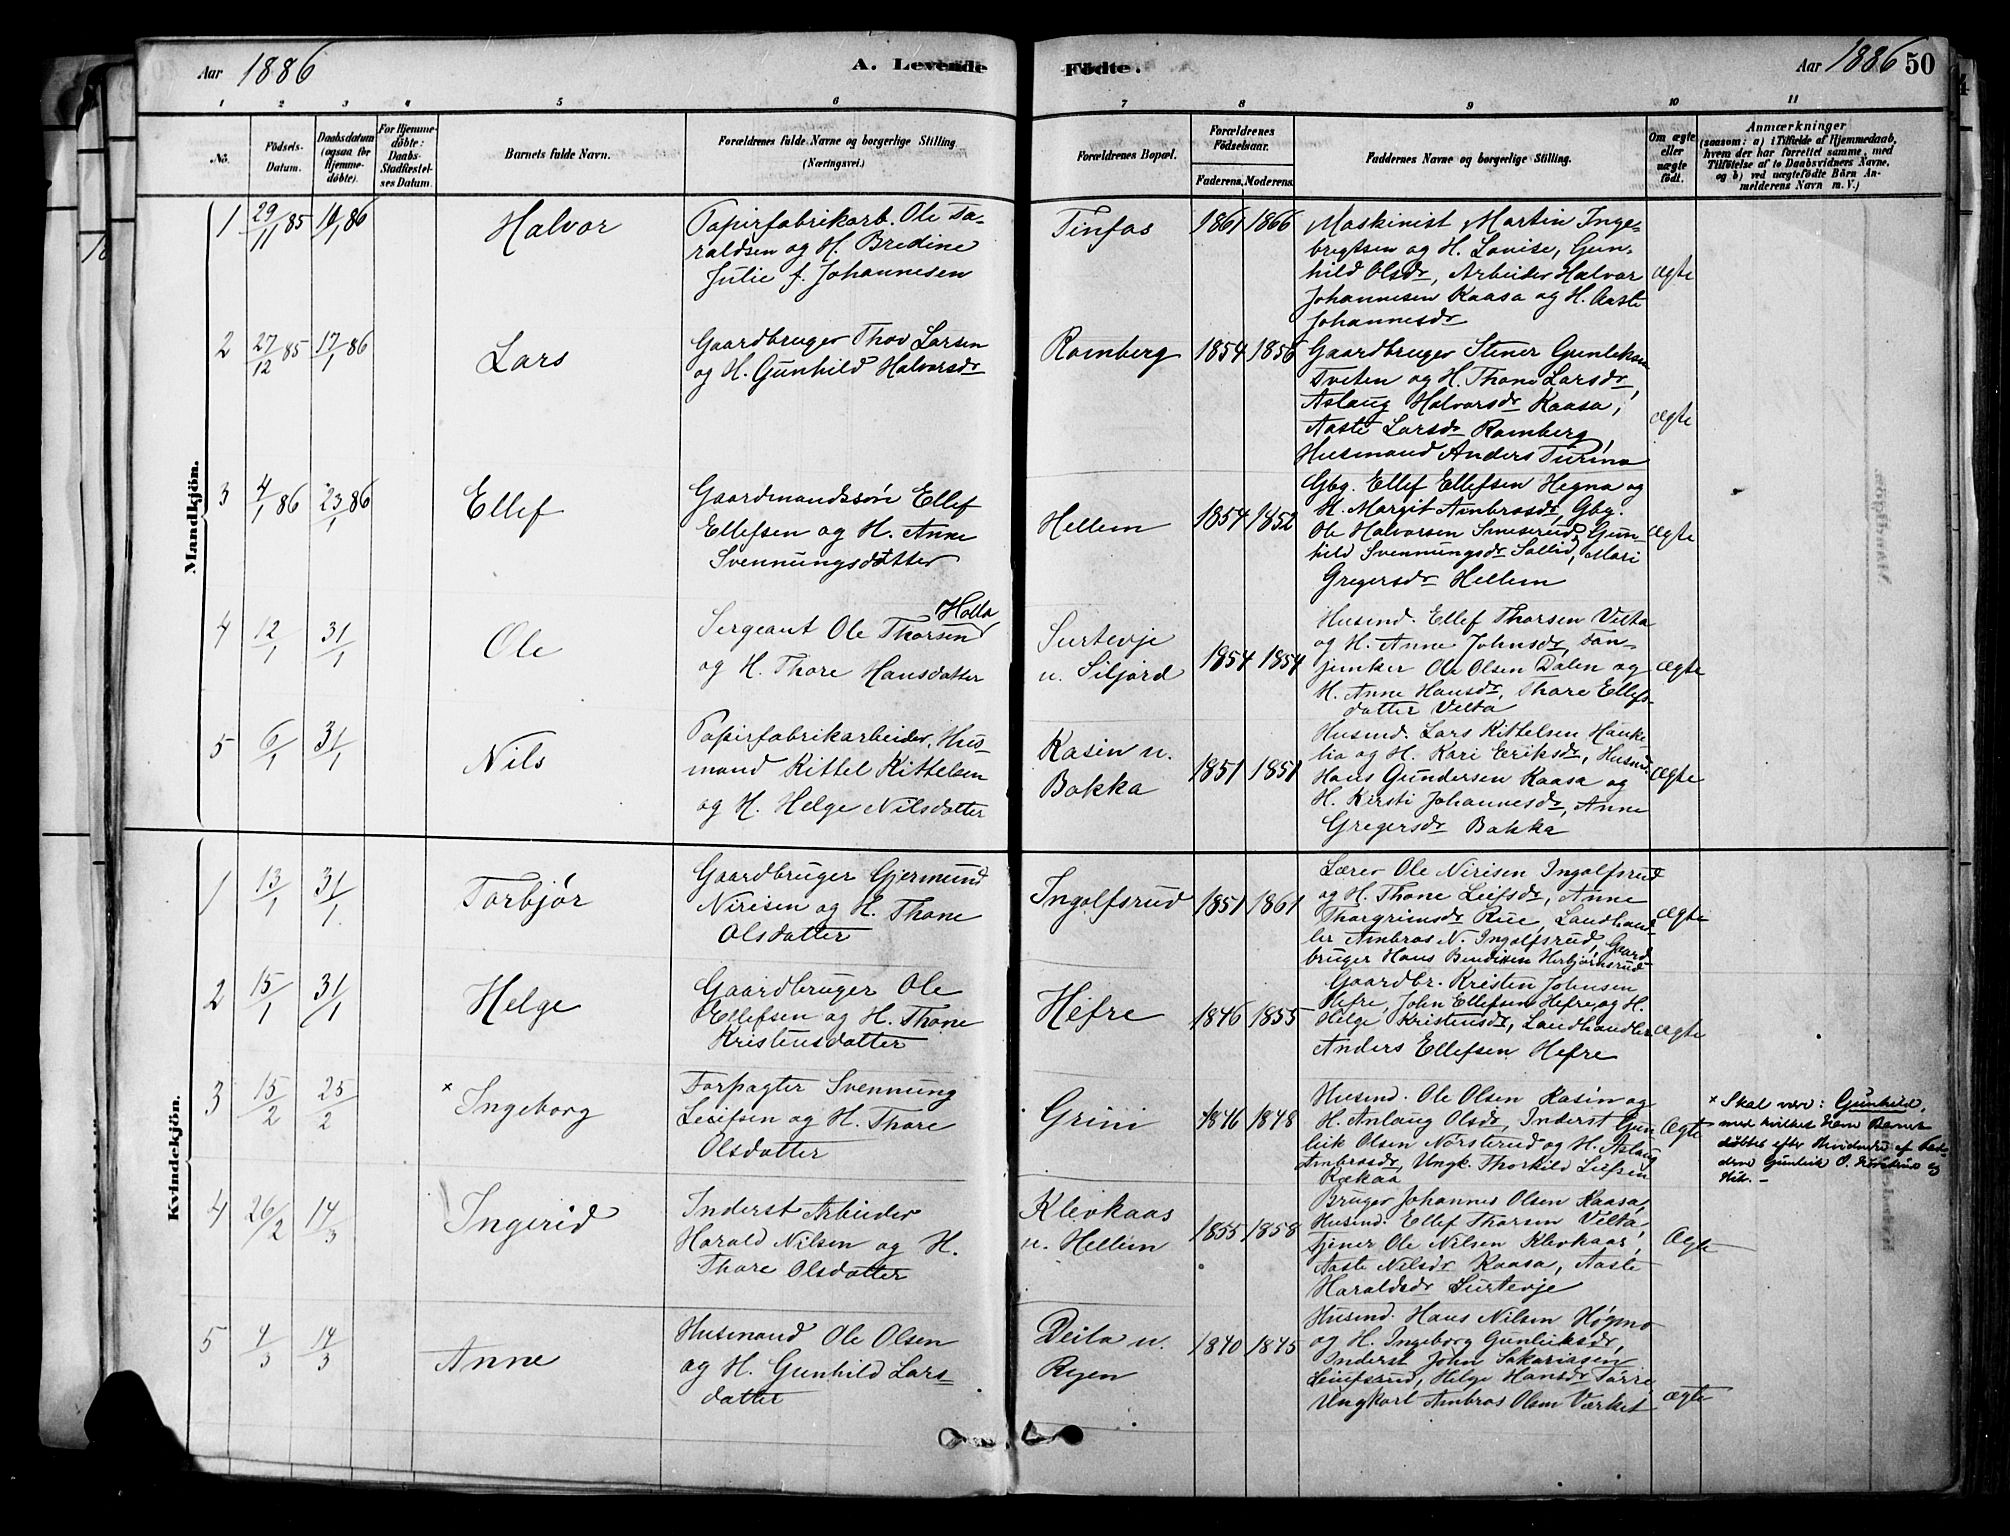 Aar 1886 A. Levende Fødte. Aar 1886 50
1 2 3 4 5 6 7 8 9 10 11
No. Fødsels-Datum. Daabsdatum (ogsaa for Hjemme-døbte). For Hjemme-døbte: Daabs-Stadfæstel-ses Datum. Barnets fulde Navn. Forældrenes fulde Navne og borgerlige Stilling (Næringsvei.) Forældrenes Bopæl. Forældrenes Fødselsaar. Faderens. Moderens. Faddernes Navne og borgerlige Stilling. Om ægte eller uægte født.
Anmærkninger
(saasom: a) i Tilfælde af Hjemmedaab,
hvem der har forrettet samme, med
Tilføielse af to Daabsvidners Navne,
og b) ved uægtefødte Børn An-
melderens Navn m. V.)
Mandkjön.
1 29/11 85 10/1 86 Halvor
Papirfabrikarb. Ole Ta-
raldsen og H. Bredine
Julie f. Johannesen
Tinfos 1861 1866
Maskinist Martin Inge-
brigtsen og H. Lovise, Gun-
hild Olsdr, Arbeider Halvor
Johannesen Kaasa og H. Aaste
Johannesdr
ægte
2 27/12 85 17/1 86 Lars
Gaardbruger Thov Larsen
og H. Gunhild Halvorsdr
Romberg 1854 1856
Gaardbruger Stener Gunleksen
Tveten og H. Thone Larsdr,
Aslaug Halvorsdr Kaasa,
Aaste Larsdr Romberg,
Husmand Anders Turmo
ægte
3 4/1 86 23/1 86 Ellef
Gaardmandssøn Ellef
Ellefsen og H. Anne
Svennungsdatter
Hellem 1854 1852
Gbg. Ellef Ellefsen Hegna og
H. Margit Ambrosdr, Gbg.
Ole Halvorsen Smiserud, Gun-
hild Svennungsdr Sollid, Mari
Gregersdr Hellem
ægte
4 12/1 31/1 Ole
Holla
Sergeant Ole Thorsen
og H. Thore Hansdatter
Surtevje
u. Siljord
1854 1854
Husmd. Ellef Thorsen Velta
og H. Anne Johnsdr, Fan-
junker Ole Olsen Dalen og
H. Anne Hansdr, Thore Ellefs-
datter Velta
ægte
5 6/1 31/1 Nils
Papirfabrikarbeider, Hus-
mand Kittel Kittelsen
og H. Helge Nilsdatter
Kasin u.
Bakka
1851 1851
Husmd. Lars Kittelsen Hauke-
lia og H. Kari Eriksdr, Husmd.
Hans Gundersen Kaasa og
H. Kersti Johannesdr, Anne
Gregersdr Bakka
ægte
Kvindekjön.
1 13/1 31/1 Torbjør
Gaardbruger Gjermund
Nirisen og H. Thone
Olsdatter
Ingolfsrud 1851 1861
Lærer Ole Nirisen Ingolfsrud
og H. Thone Leifsdr, Anne
Thorgrimsdr Rue, Landhand-
ler Ambros N. Ingolfsrud, Gaard
bruger Hans Bendixen Herbjørnsrud
ægte
2 15/1 31/1 Helge
Gaardbruger Ole
Ellefsen og H. Thone
Kristensdatter
Hefre 1846 1855
Gaardbr. Kristen Johnsen
Hefre, John Ellefsen Hefre og H.
Helge Kristensdr, Landhandler
Anders Ellefsen Hefre
ægte
3 15/2 25/2 × Ingeborg
Forpagter Svennung
Leifsen og H. Thore
Olsdatter
Grini 1846 1848
Husmd. Ole Olsen Kasin og
H. Anlaug Olsdr, Inderst Gun-
leik Olsen Norsterud og H. Aslaug
Ambrosdr, Ungk. Thorkild Leifsen
Rakaa
ægte
× Skal være: Gunhild,
med hvilket Navn Barnet
døbtes efter Vidnesbyrd af Fad-
drene Gunleik O. Norsterud og
4 26/2 14/3 Ingerid
Inderst Arbeider
Harald Nilsen og H.
Thore Olsdatter
Klevkaas
u. Hellem
1855 1858
Bruger Johannes Olsen Kaasa,
Husmd. Ellef Thorsen Velta,
Tjener Ole Nilsen Klevkaas,
Aaste Nilsdr Kaasa, Aaste
Haraldsdr Surtevje
ægte
5 4/3 14/3 Anne
Husmand Ole Olsen
og H. Gunhild Lars-
datter
Deila u.
Rejen
1840 1845
Husmd. Hans Nilsen Høgmo
og H. Ingeborg Gunleiksdr,
Inderst John Sakariasen
Leiefsrud, Helge Hansdr Torre
Ungkarl Ambros Olsen Værket
ægte